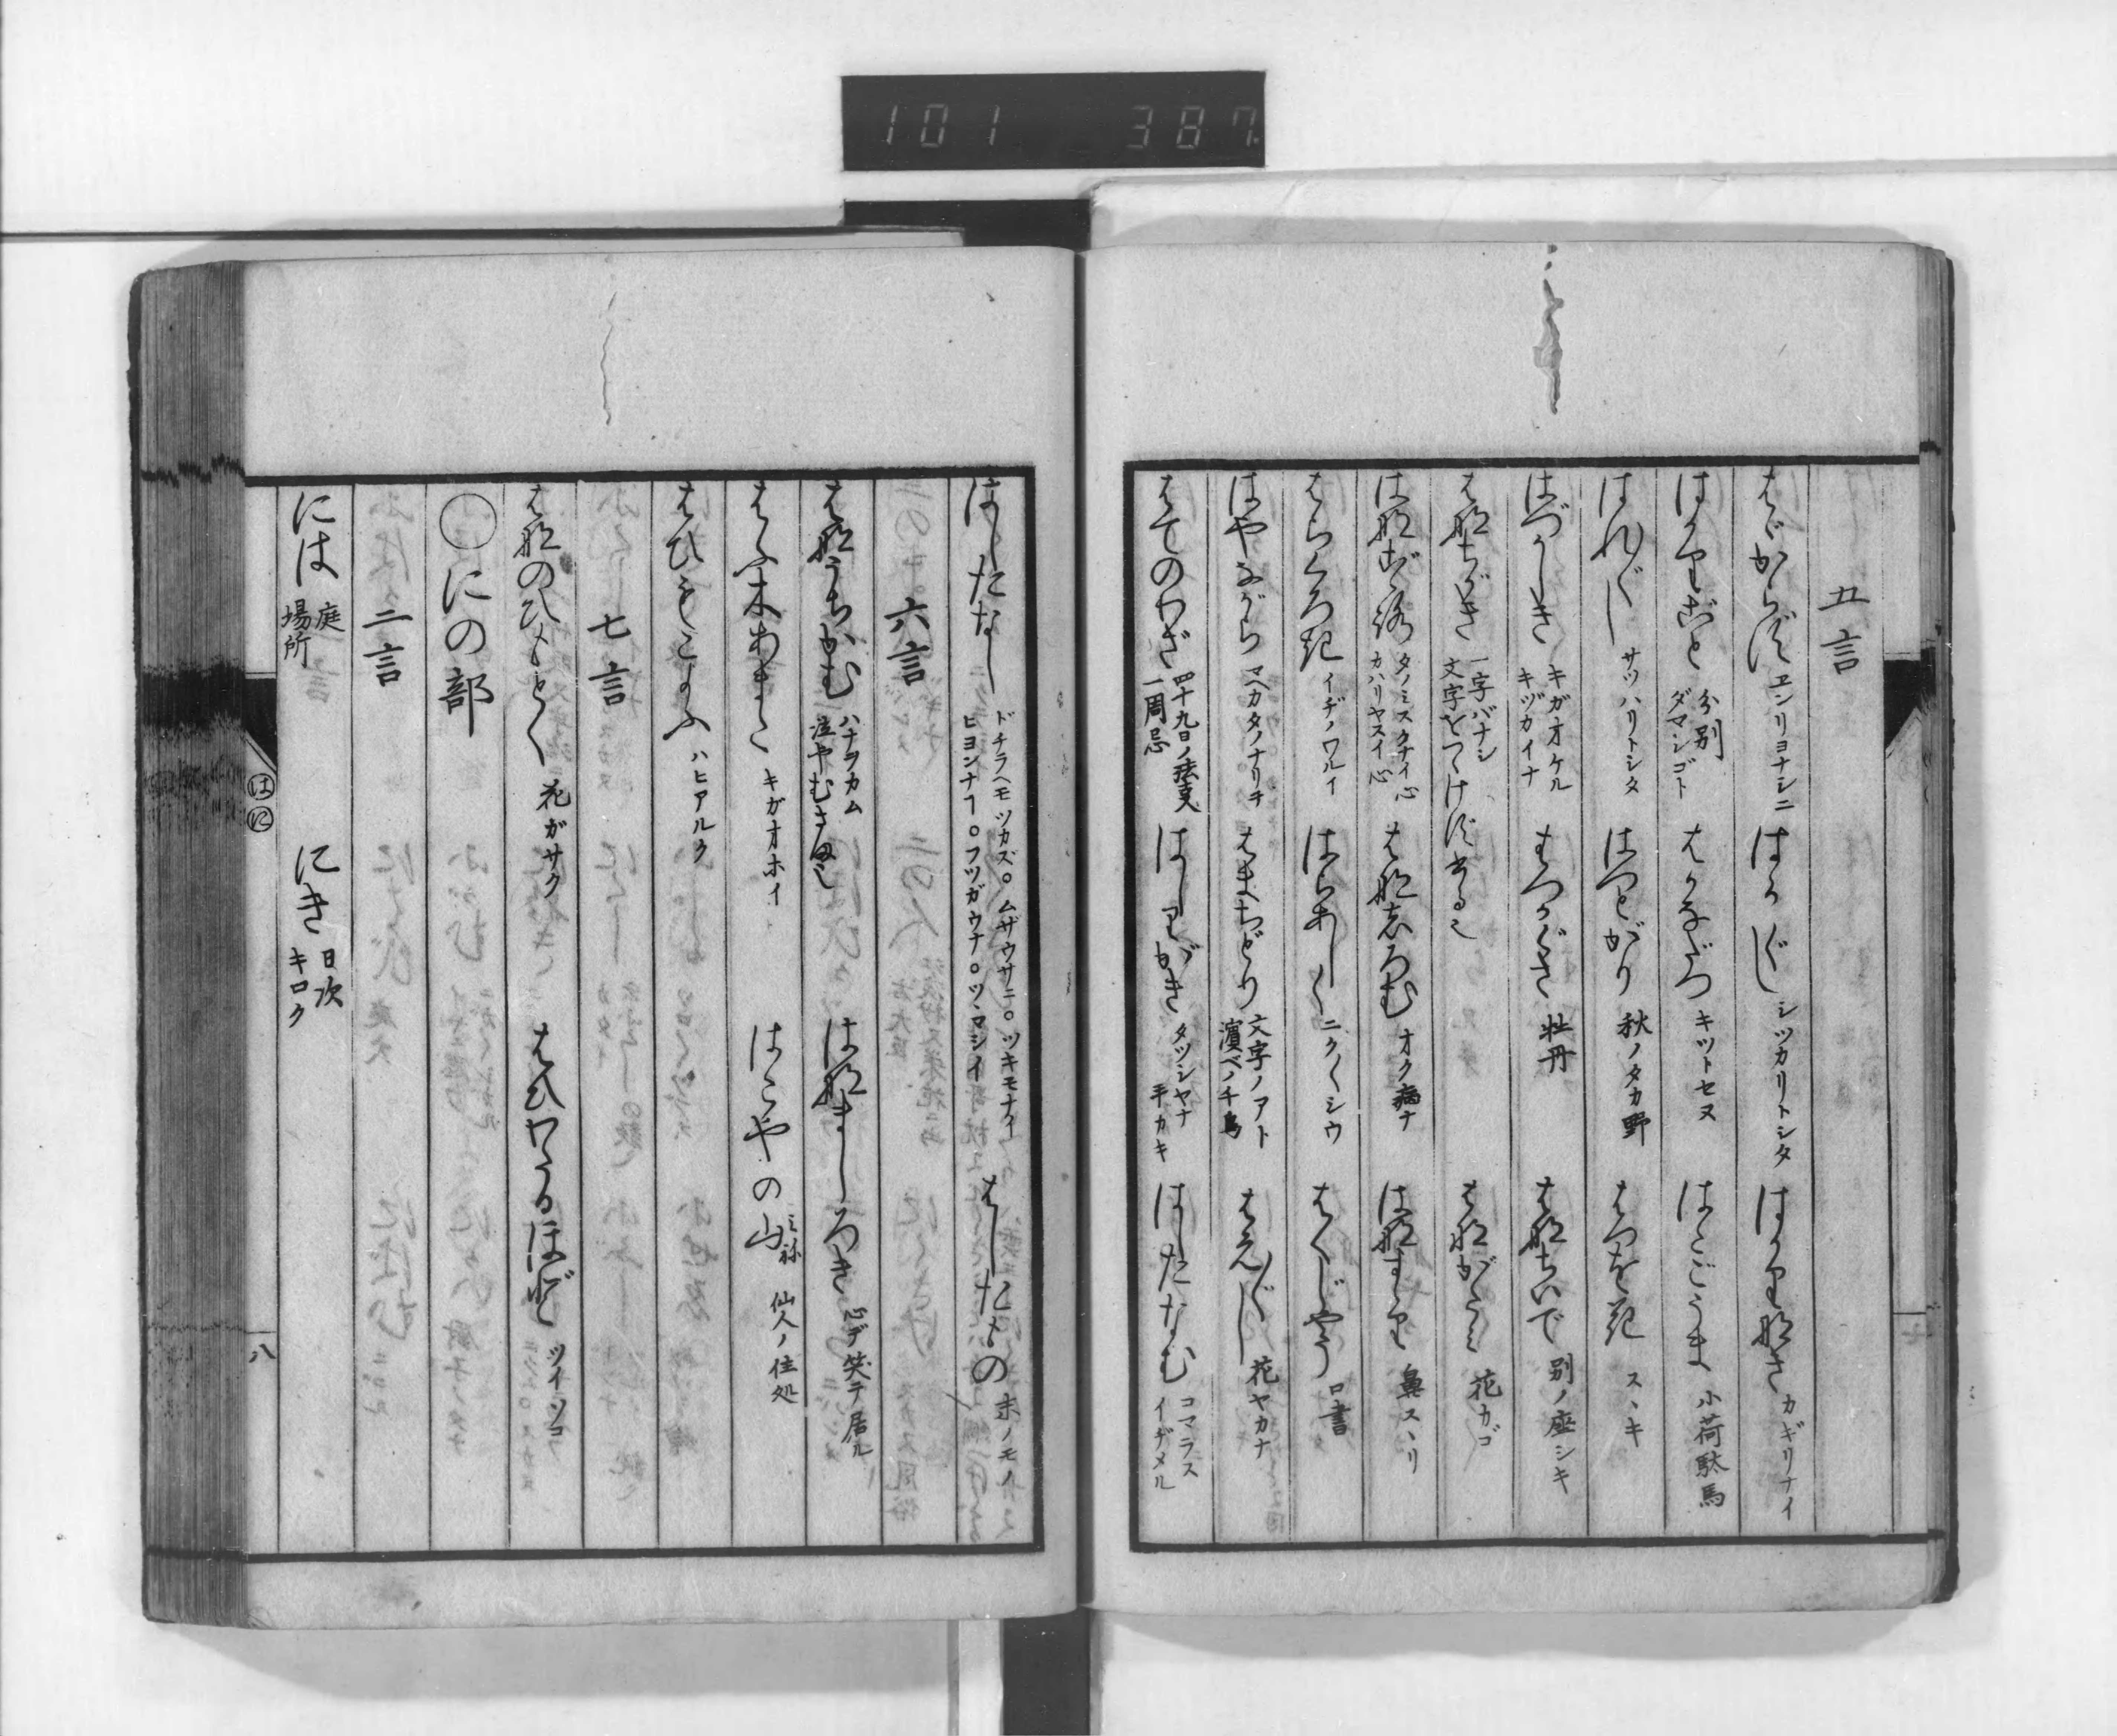 101 387
五言
はゞからず ヱンリヨナシニ はか〴〵し シツカリトシタ はかりなき カギリナイ
はかりごと 分別 ダマシゴト はかなだつ キツトセヌ はこごうま 小荷駄馬
はれ〴〵し サツハリトシタ はつとがり 秋ノタカ野 はつを花 スヽキ
はづかしき キガオケル キヅカイナ はつかぐさ 牡丹 はなちいで 別ノ座シキ
はなちがき 一字バナシ 文字をつゞけずかる也 はながたみ 花カゴ
はなごゝろ タノミスクナイ心 カハリヤスイ心 はなじろむ オク病ナ はなすゝり 鼻スヽリ
はらくろき イヂノワルイ はらあし〳〵 ニク〳〵シウ はくじやう 口書
はやながら マヘカタノナリデ はまちどり 文字ノアト 濱ベノチ鳥 はえ〴〵し 花ヤカナ
はてのわざ 四十九日ノ法夏 一周忌 はしりがき タツシヤナ 手カキ はしたなむ コマラス イヂメル
はしたなし ドチラヘモツカズ。ムザウサニ。ツキモナイ ヒヨンナヿ。フツガウナ。ツヽマシイ はしたもの 末ノモノ
六言
はなうちかむ ハナヲカム 泣やむさま也 はなまじろき 心デ笑テ居ル
はふ木あまた キガオホイ はこやの山 ミ祢 仙人ノ住処
はひもとよふ ハヒアルク
七言
はなのひもとく 花ガサク はひわたるほど ツイソコ
○にの部
二言
には 庭 場所 にき 日次 キロク
はに
八